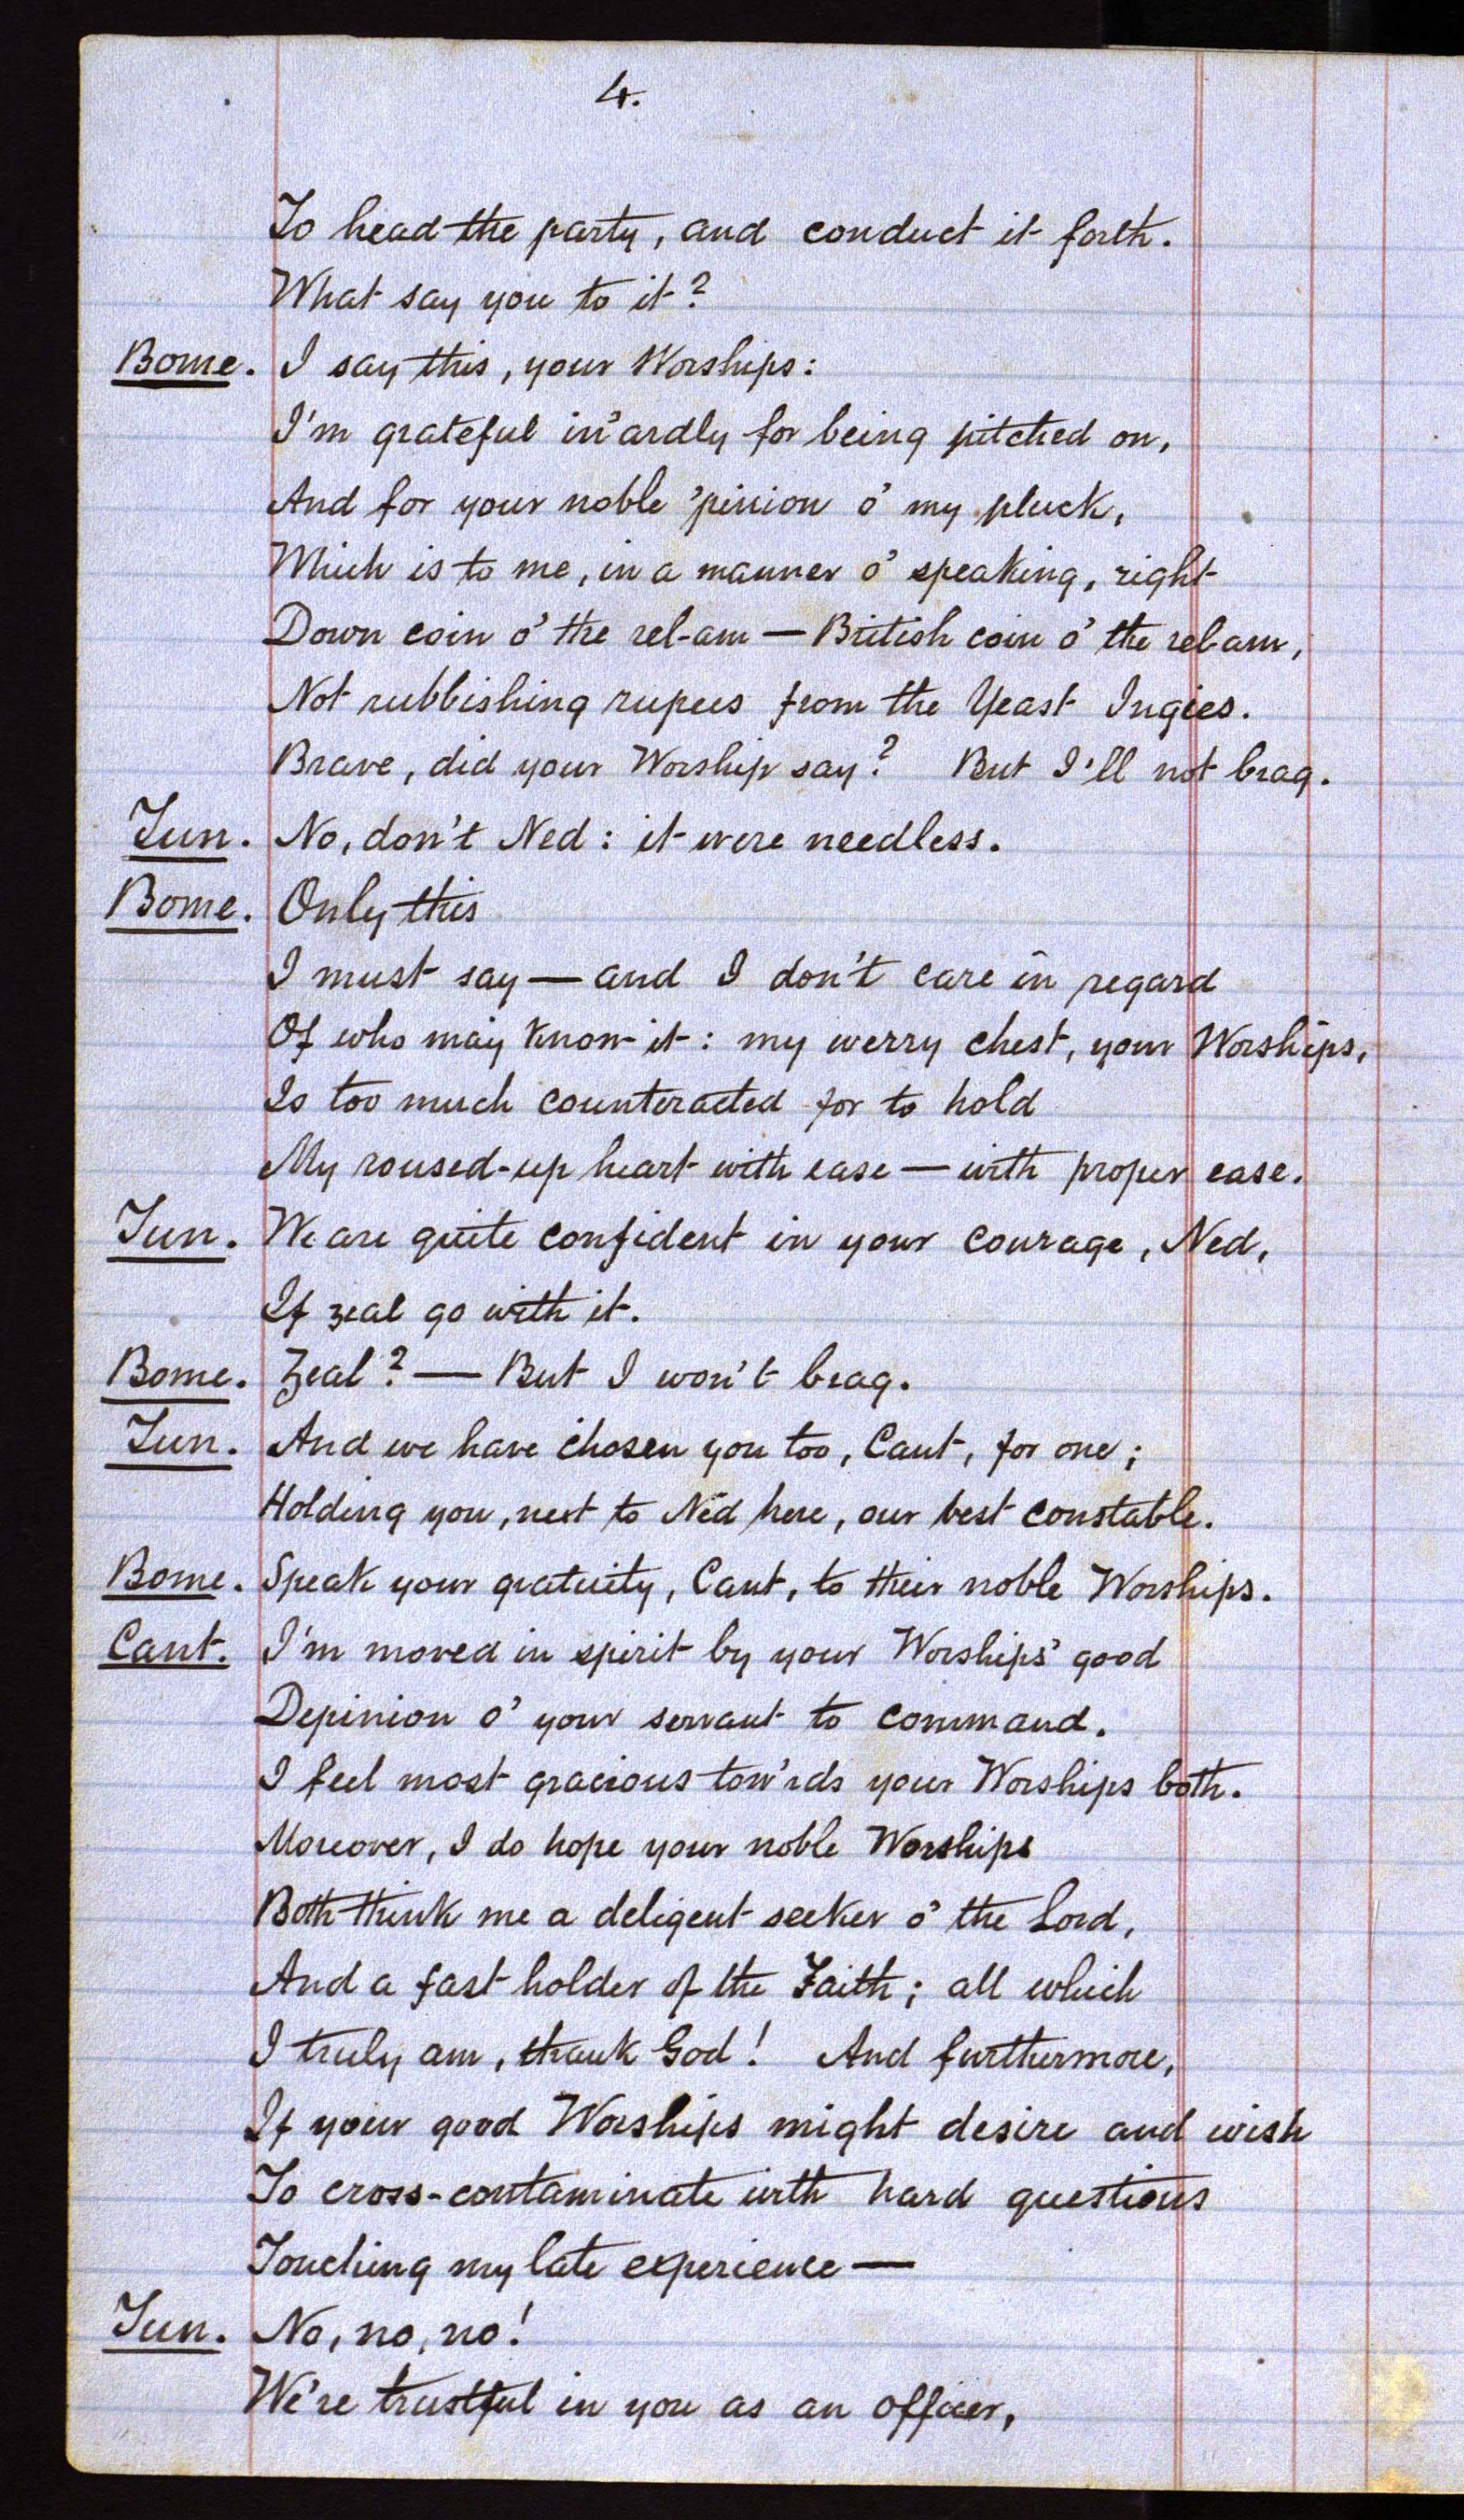 4.
To head the party, and conduct it forth.
What say you to it?
Bome. I say this, your Worships:
I'm grateful in'ardly for being pitched on,
And for your noble 'pinion o' my pluck,
Which is to me, in a manner o' speaking, right
Down coin o' the rel-am — British coin o' the rel-am,
Not rubbishing rupees from the Yeast Ingies.
Brave, did your Worship say? But I'll not brag.
Jun. No, don't Ned: it were needless.
Bome. Only this
I must say — and I don't care in regard
Of who may know it: my werry chest, your Worships,
Is too much counteracted for to hold
My roused-up heart with ease — with proper ease.
Jun. We are quite confident in your courage, Ned,
If zeal go with it.
Bome. Zeal? — But I won't brag.
Jun. And we have chosen you too, Cant, for one;
Holding you, next to Ned here, our best constable.
Bome. Speak your gratuity, Cant, to their noble Worships.
Cant. I'm moved in spirit by your Worships' good
Depinion o' your servant to command.
I feel most gracious tow'rds your Worships both.
Moreover, I do hope your noble Worships
Both think me a deligent seeker o' the Lord,
And a fast holder of the Faith; all which
I truly am, thank God! And furthermore,
If your good Worships might desire and wish
To cross-contaminate with hard questions
Touching my late experience —
Jun. No, no, no!
We're trustful in you as an officer,